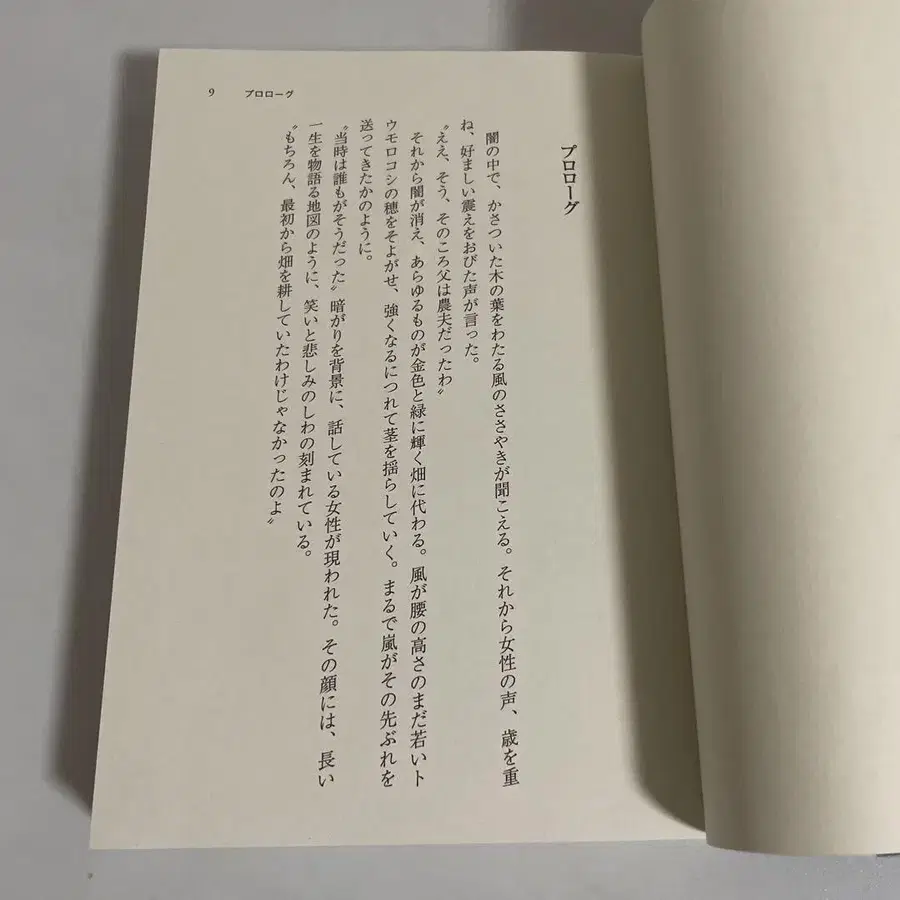 9 プロローグ
プロローグ
闇の中で、かさついた木の葉をわたる風のささやきが聞こえる。それから女性の声、歳を重
ね、好ましい震えをおびた声が言った。
〝ええ、そう、そのころ父は農夫だったわ〟
それから闇が消え、あらゆるものが金色と緑に輝く畑に代わる。風が腰の高さのまだ若いト
ウモロコシの穂をそよがせ、強くなるにつれて茎を揺らしていく。まるで嵐がその先ぶれを
送ってきたかのように。
〝当時は誰もがそうだった〟暗がりを背景に、話している女性が現われた。その顔には、長い
一生を物語る地図のように、笑いと悲しみのしわの刻まれている。
〝もちろん、最初から畑を耕していたわけじゃなかったのよ〟